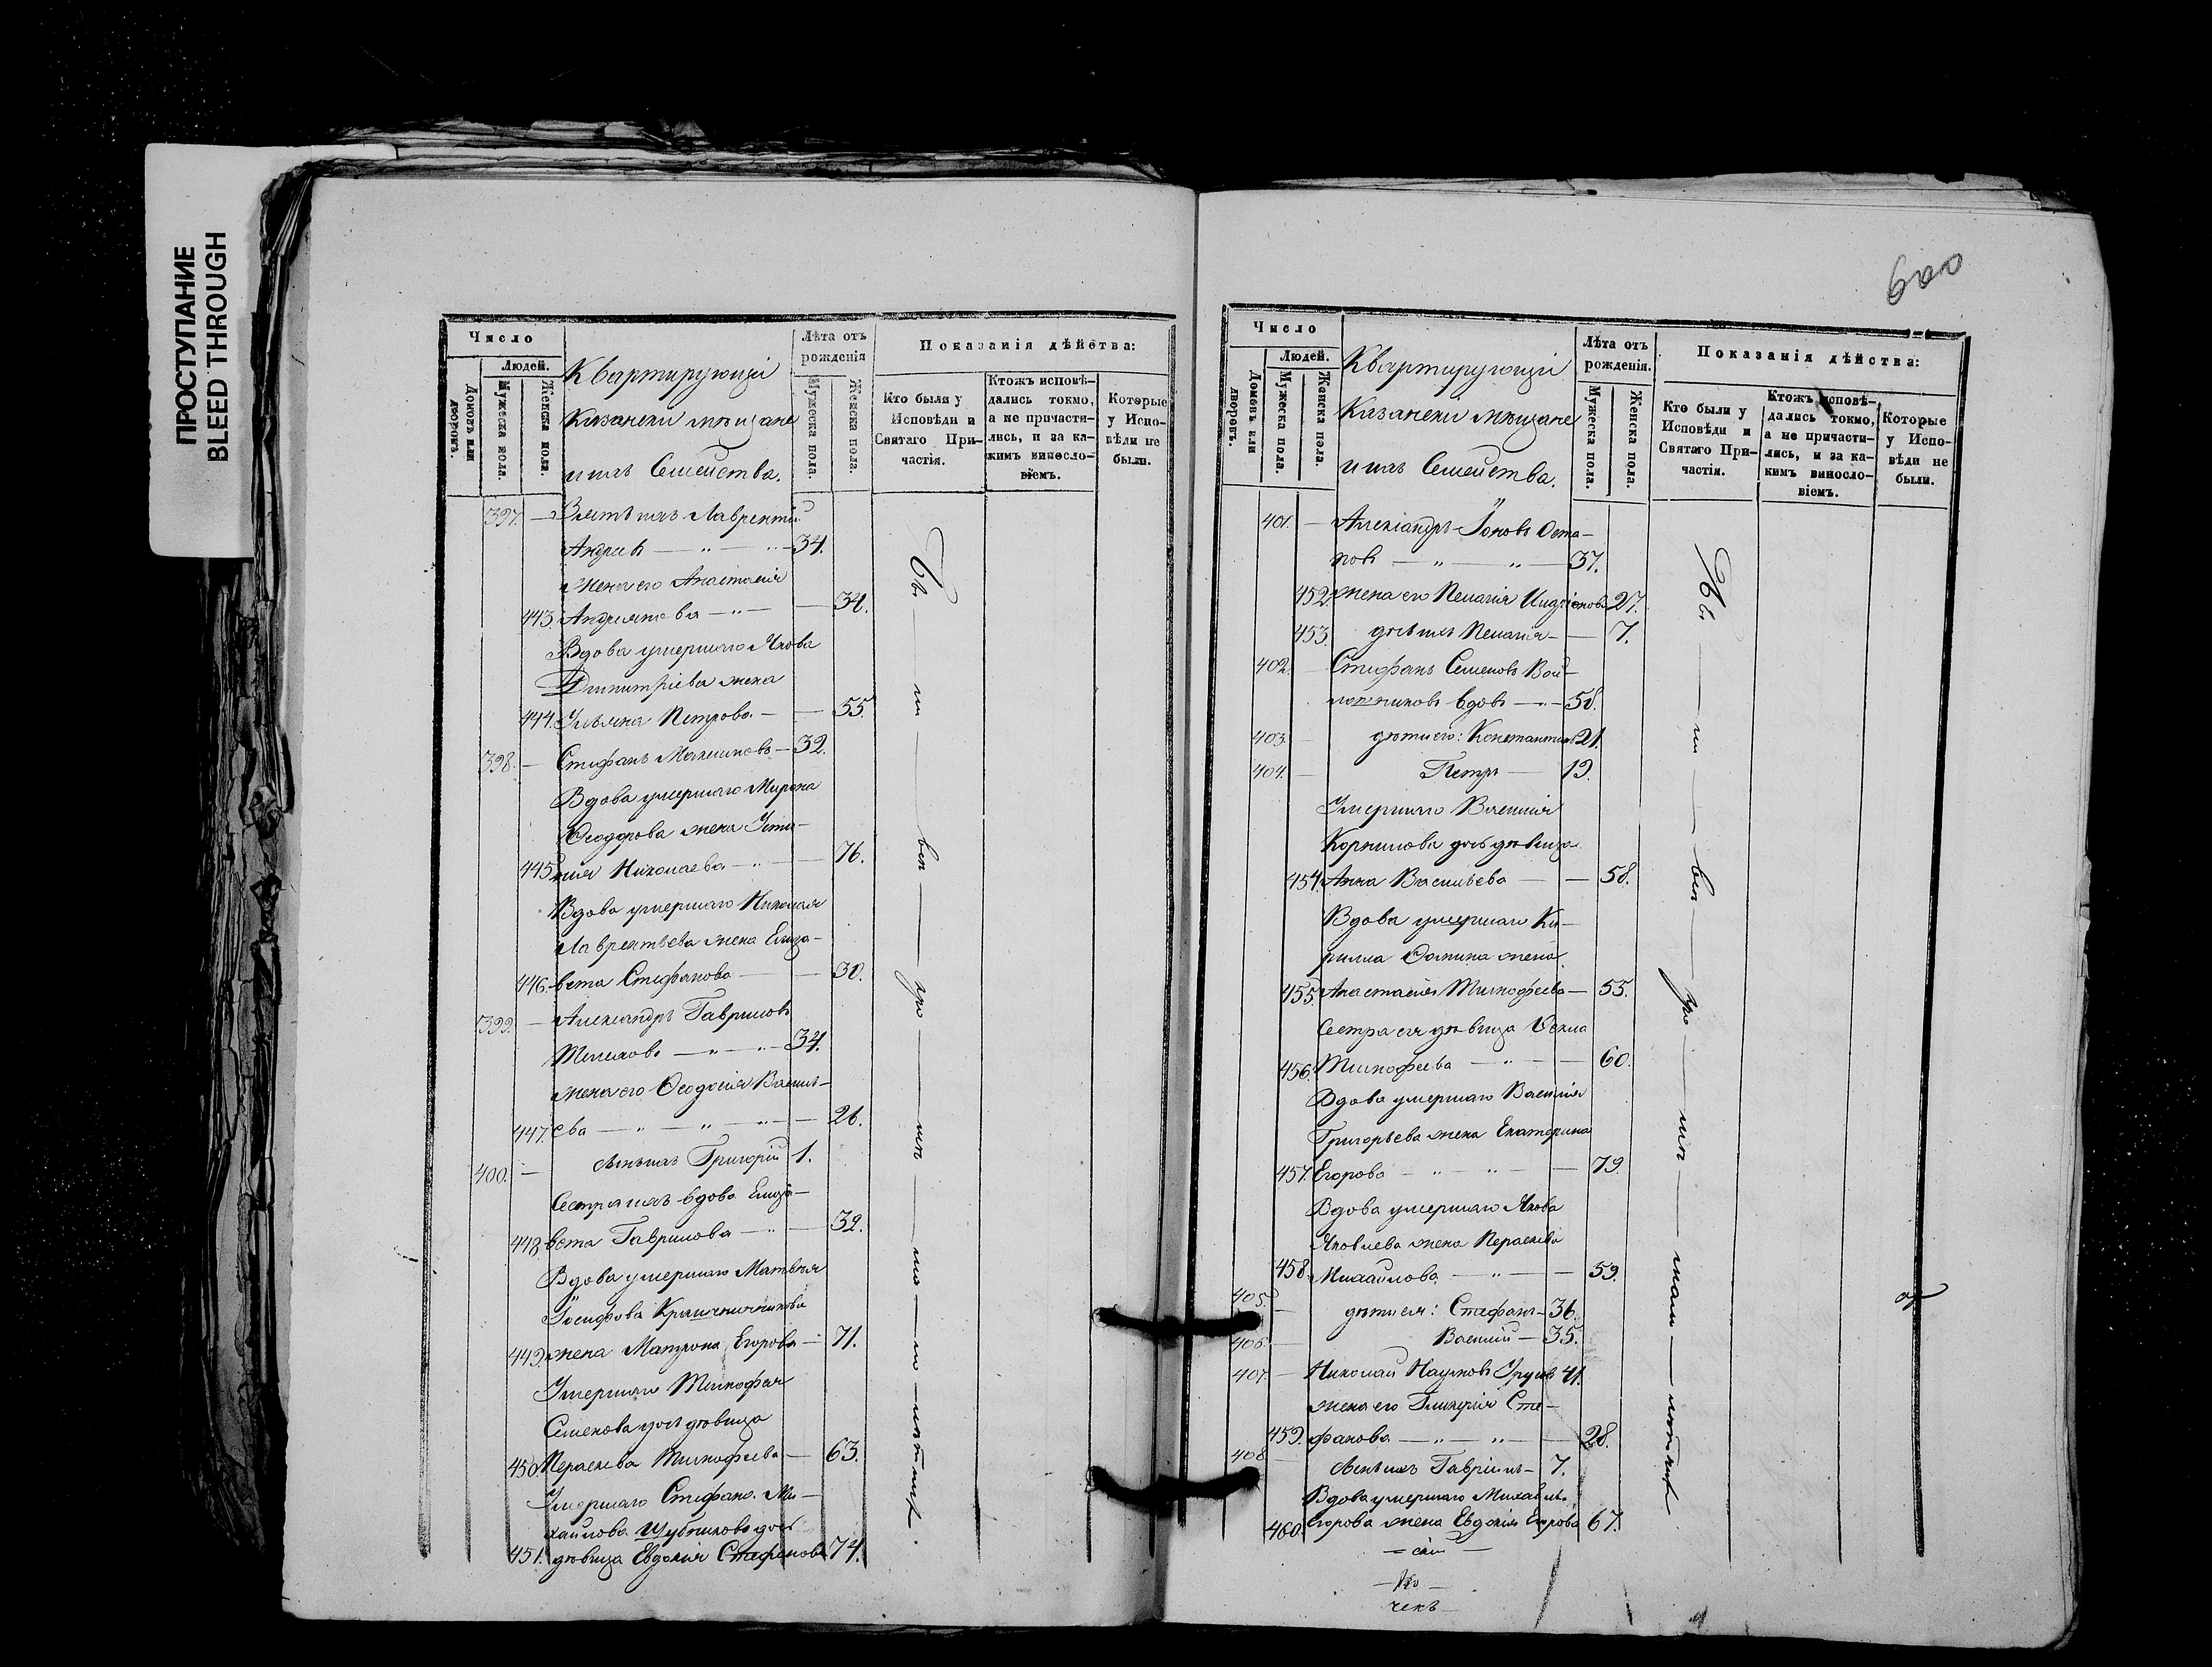 ПРОСТУПАНИЕ
BLEED THROUGH
600
Число
Людей.
Домовъ или дворовъ.
Мужеска пола.
Женска пола.
Квартирующіи
Казанскіи мѣщане
и ихъ Семейства.
Лѣта отъ
рожденія
Мужеска пола.
Женска пола.
Показанія дѣйства:
Кто были у
Исповѣди и
Святаго При-
частія.
Ктожъ исповѣ-
дались токмо,
а не причасти-
лись, и за ка-
кимъ винносло-
віемъ.
Которые
у Испо-
вѣди не
были.
397. — Зять ихъ Лаврентій
Андреевъ — 34.
жена его Анастасія
443. — 34.
Вдова умершаго Якова
Димитріева жена
444. Ульяна Петрова — 55.
398. — Стефанъ Максимовъ — 32.
Вдова умершаго Мирона
Ѳеодорова жена Усти-
445. нія Николаева — 76.
Вдова умершаго Николая
Лаврентьева жена Елиза-
446. вета Стефанова — 30.
399. — Александръ Гавриловъ
— 34.
жена его Ѳеодосія Василь-
447. ева — 26.
400. — Сынъ ихъ Григорій 1.
Сестра ихъ вдова Елиза-
448. вета Гаврилова — 32.
Вдова умершаго Матвѣя
Іосифова
449. жена Матрона Егорова — 71.
Умершаго Тимофея
Семенова дочь дѣвица
450. Параскева Тимофеева — 63.
Умершаго Стефана Ми-
хайлова дочь
451. дѣвица Евдокія Стефанова 74.
Число
Людей.
Домовъ или дворовъ.
Мужеска пола.
Женска пола.
Квартирующіи
Казанскіи мѣщане
и ихъ Семейства.
Лѣта отъ
рожденія.
Мужеска пола.
Женска пола.
Показанія дѣйства:
Кто были у
Исповѣди и
Святаго При-
частія.
Ктожъ исповѣ-
дались токмо,
а не причасти-
лись, и за ка-
кимъ винносло-
віемъ.
Которые
у Испо-
вѣди не
были.
401. — Александръ Іоновъ Оста-
повъ — 37.
452. жена его Пелагія 27.
453. дочь ихъ Пелагія — 7.
402. — Стефанъ Семеновъ Вой-
лошниковъ вдовъ — 58.
403. — дѣти его: Константинъ 21.
404. — Петръ — 19.
Умершаго Василія
Корнилова дочь дѣвица
454. Анна Васильева — 58.
Вдова умершаго Ки-
рилла Ѳомина жена
455. Анастасія Тимофеева — 55.
Сестра ея дѣвица Ѳекла
456. Тимофеева — 60.
Вдова умершаго Василія
Григорьева жена Екатерина
457. Егорова — 79.
Вдова умершаго Якова
Яковлева жена Параскева
458. Михайлова — 59.
405. — дѣти ея: Стефанъ — 36.
406. — Василій — 35.
407. — Николай Наумовъ 41.
жена его Гликерія Сте-
459. фанова — 28.
408. — Сынъ ихъ Гавріилъ — 7.
Вдова умершаго Михаила
460. Егорова жена Евдокія Егорова 67.